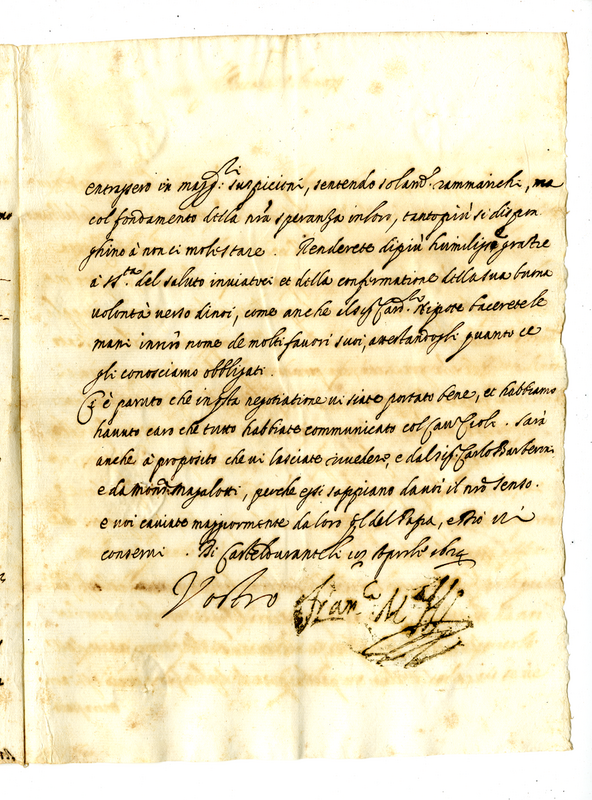 entrassero in magg.ri suspicioni, sentendo soland. rammarichi, ma
col fondamento della nrã speranza in loro, tanto più si dispon
ghino à non ci molestare. Renderete di più humiliss.e gratie
à S. S.tà del saluto inviatoci et della confermatione della sua buona
volontà verso di noi, come anche il sig.r Card.le Nipote bacerete le
mani in nrõ nome de molti favori suoi, attestandogli quanto ce
gli conosciamo obbligati.
Ci è paruto che in q.sta negotiatione vi siate portato bene, et habbiamo
havuto caro che tutto habbiate communicato col Cav.r Gioli. Sarà
anche à proposito che vi lasciate rivedere, e dal sig.r Carlo Barberini
e da Mons.r Magalotti, perche essi sappiano da voi il nrõ senso.
e voi caviate maggiormente da loro q.l del Papa, e Dio vi
conservi. Di Casteldurante li Aprile 1624
Vostro Fran.co M.a